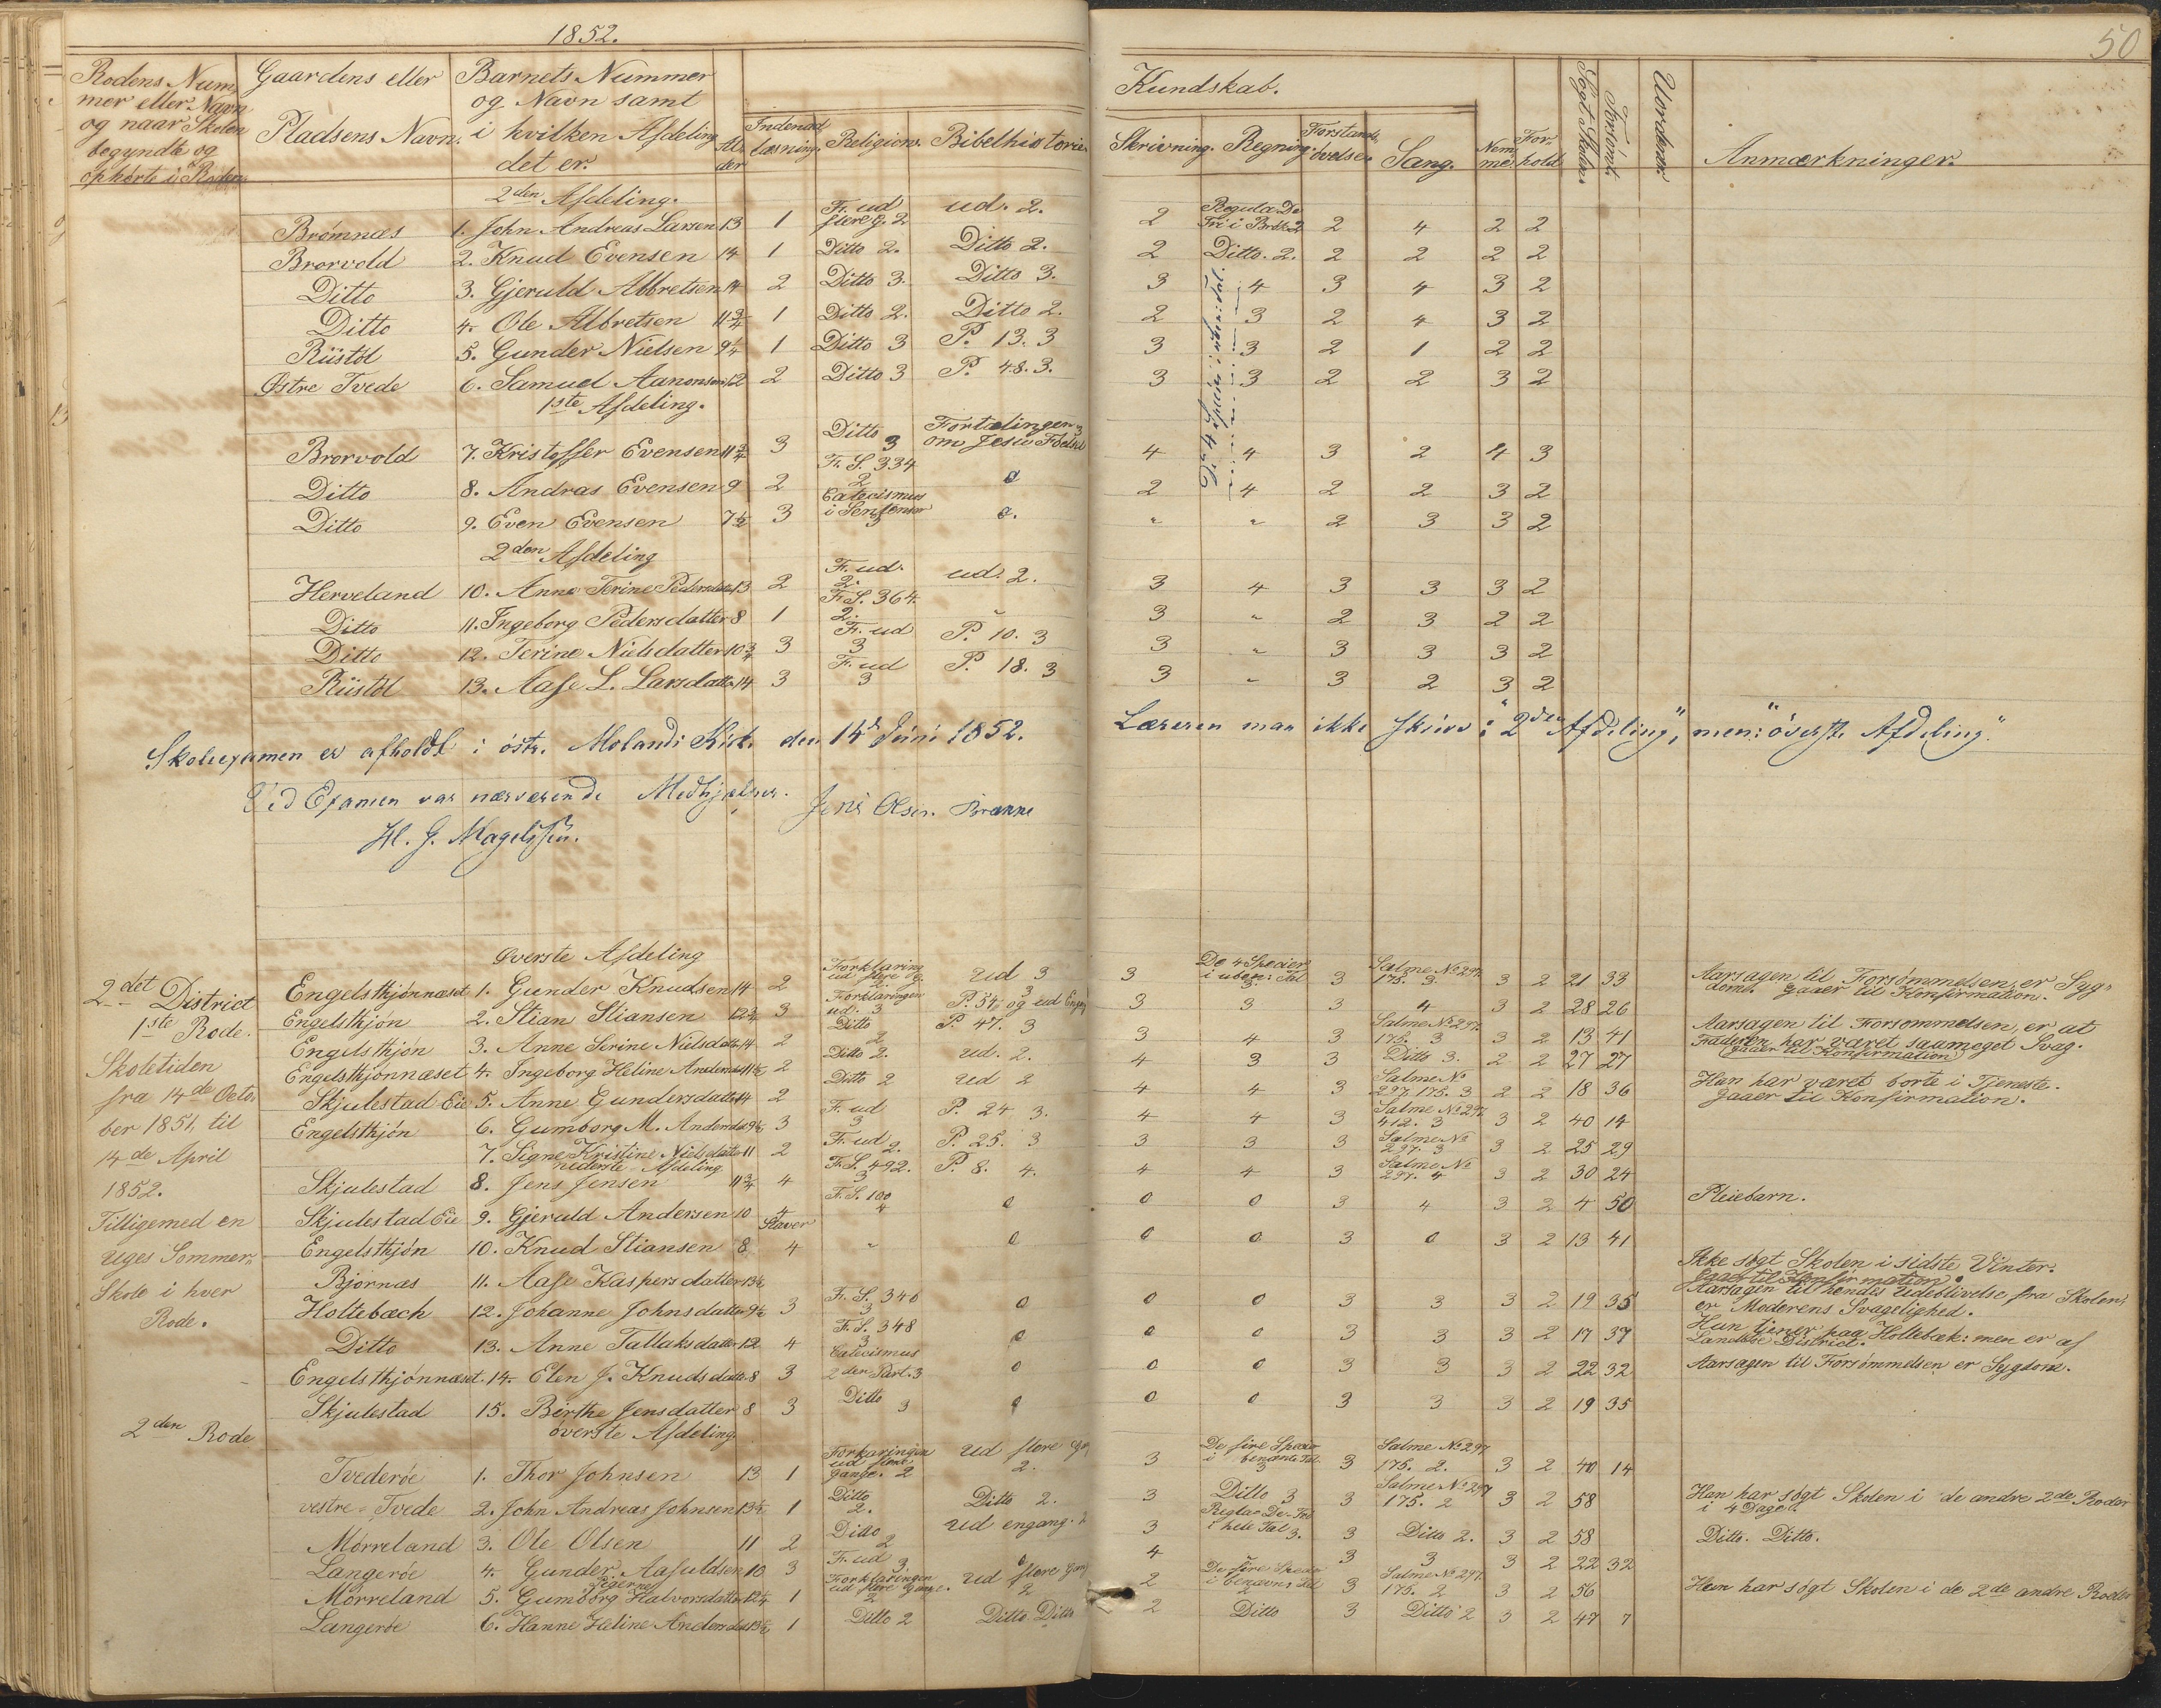 1852.
50
Rodens Num-
mer eller Navn
og naar Skolen
begyndte og
ophørte i Roden.
Gaardens eller
Pladsens Navn.
Barnets Nummer
og Navn samt
i hvilken Afdeling
det er.
Al-
der
Indenad
læsning.
Religion.
Bibelhistorie
Kundskab.
Skrivning.
Regning.
Forstands
øvelse.
Sang.
Nem-
me
For-
hold
Søgt Skolen.
Forsømt
Vorderer
Anmærkninger.
2den Afdeling.
Brømnæs 1. John Andreas Larsen 13 1 Fr. ud flere g. 2 ud. 2. 2 Regula De Tri i Brøk 2 2 4 2 2
Brorvold 2. Knud Evensen 14 1 Ditto 2. Ditto 2. 2 Ditto. 2. 2 2 2 2
Ditto 3. Gjeruld Albretsen 14 2 Ditto 3. Ditto 3. 3 4 3 4 3 2
Ditto 4. Ole Albretsen 11 3/4 1 Ditto 2. Ditto 2. 2 3 2 4 3 2
Riistøl 5. Gunder Nielsen 9 1/4 1 Ditto 3 P. 13. 3 3 3 2 1 2 2
Østre Tvede 6. Samuel Aanonsen 12 2 Ditto 3 P. 48. 3. 3 3 2 2 3 2
1ste Afdeling.
Brorvold 7. Kristoffer Evensen 11 3/4 3 Ditto 3 Fortælingen om Jesu Fødsel 3 4 4 3 2 4 3
Ditto 8. Andras Evensen 9 2 Fr. S. 334 2 0 2 4 2 2 3 2
Ditto 9. Even Evensen 7 1/2 3 Catecismus 3 0. " " 2 3 3 2
2den Afdeling
Herveland 10. Anne Terine Pedersdatter 13 2 F. ud. 2. ud. 2. 3 4 3 3 3 2
Ditto 11. Ingeborg Pedersdatter 8 1 F. S. 364. 2. " 3 " 2 3 2 2
Ditto 12. Terine Nielsdatter 10 3/4 3 F. ud 3 P. 10. 3 3 " 3 3 3 2
Riistøl 13. Aase L. Larsdatter 14 3 F. ud 3 P. 18. 3 3 " 3 2 3 2
Skoleexamen er afholdt i østr. Molands Kirke den 14de Juni 1852.
Læreren maa ikke skrive: "2den Afdeling", men: "øverste Afdeling".
Ved Examen var nærværende Medhjælper. Jens Olsen Brænne
H. G. Magelssen.
2det District
1ste Rode.
Skoletiden
fra 14de Octo-
ber 1851, til
14de April
1852.
Tilligemed en
uges Sommer-
Skole i hver
Rode.
øverste Afdeling
Engelsthjønnæset 1. Gunder Knudsen 14 2 Forklaring ud flere g. 2 ud 3 3 De 4 Specier i uben: Tal 3. 3 Salme No 297. 175. 3. 3 2 21 33 Aarsagen til Forsømmelsen, er Syg-
dom. gaaer til Konfirmation.
Engelsthjøn 2. Stian Stiansen 12 3/4 3 Forklaringen ud. 3 P. 54. og ud Engang 3 3 3 3 4 3 2 28 26
Engelsthjøn 3. Anne Serine Nielsdatter 14 2 Ditto 2 P. 47. 3 3 4 3 Salme No 297. 175. 3 3 2 13 41 Aarsagen til Forsommelsen, er at
Faderen har været saameget Svag.
(gaaer til Konfirmation)
Engelsthjønnæset 4. Ingeborg Heline Andersdatter 11 1/2 2 Ditto 2. ud. 2. 4 3 3 Ditto 3. 2 2 27 27
Skjulestad Eie 5. Anne Gundersdatter 14 2 Ditto 2 ud 2 4 4 3 Salme No 297. 175. 3 2 2 18 36 Han har været borte i Tjeneste.
gaaer til Konfirmation.
Engelsthjøn 6. Gumborg M. Andersdatter 9 1/2 3 F. ud 3 P. 24 3. 4 4 3 Salme No 297. 412. 3 3 2 40 14
7. Signe Kristine Nielsdatter 11 2 F. ud 2. P. 25. 3 3 3 3 Salme No 297. 3 3 2 25 29
nederste Afdeling
Skjulestad 8. Jens Jensen 11 3/4 4 F. S. 492. 3 P. 8. 4. 4 4 3 Salme No 297. 4 3 2 30 24
Skjulestad Eie 9. Gjeruld Andersen 10 4 F. S. 100 4 0 0 0 3 4 3 2 4 50 Pleiebarn.
Engelsthjøn 10. Knud Stiansen 8 Staver 4 " 0 0 0 3 0 3 2 13 41
Bjørnæs 11. Aase Kaspersdatter 13 1/2 Ikke søgt Skolen i sidste Vinter.
gaaer til Konfirmation.
Holtebæch 12. Johanne Johnsdatter 9 1/2 3 F. S. 340 3 0 0 0 3 3 3 2 19 35 Aarsagen til hendes udeblivelse fra Skolen,
er Moderens Svagelighed.
Ditto 13. Anne Tallaksdatter 12 4 F. S. 348 3 0 0 0 3 3 3 2 17 37 Hun tjener paa Holtebæk: men er af
Landvse District.
Engelsthjønnæset. 14. Elen J. Knudsdatter 8 3 Catecismus 2den Part. 3 0 0 0 3 3 3 2 22 32 Aarsagen til Forsømmelsen er Sygdom.
Skjulestad 15. Birthe Jensdatter 8 3 Ditto 3 0 0 0 3 3 3 2 19 35
2den Rode
øverste Afdeling
Tvederøe 1. Thor Johnsen 13 1 Forkaringen ud flere gange. 2 ud flere 2. 3 De fire Specier i benante Tal 3 3 Salme No 297. 175. 2. 3 2 40 14
vestre-Tvede 2. John Andreas Johnsen 13 1/2 1 Ditto 2. Ditto 2. 3 Ditto 3 3 Salme No 297 175. 2 3 2 58 Han har søgt Skolen i de andre 2de Roder
i 4 Dage.
Mørreland 3. Ole Olsen 11 2 Ditto 2 ud engang. 3 Regla-De-Tri i hele Tal 3. 3 Ditto 2. 3 2 58 Ditto. Ditto.
Langerøe 4. Gunder Aasuldsen 10 3 F. ud 3 0 4 " 3 3 3 2 22 32
Pigerne
Mørreland 5. Gumborg Halvorsdatter 12 1/4 1 Forklaringen ud flere gange. 2 ud flere Gang 2 2 De fire Specier i benævnt Tal 2 3 Salme No 297. 175. 2 3 2 56 Hun har søgt Skolen i de 2de andre Roder
Langerøe 6. Hanne Heline Andersdatter 13 1/2 1 Ditto 2 Ditto Ditto 2 Ditto 3 Ditto 2 3 2 47 7